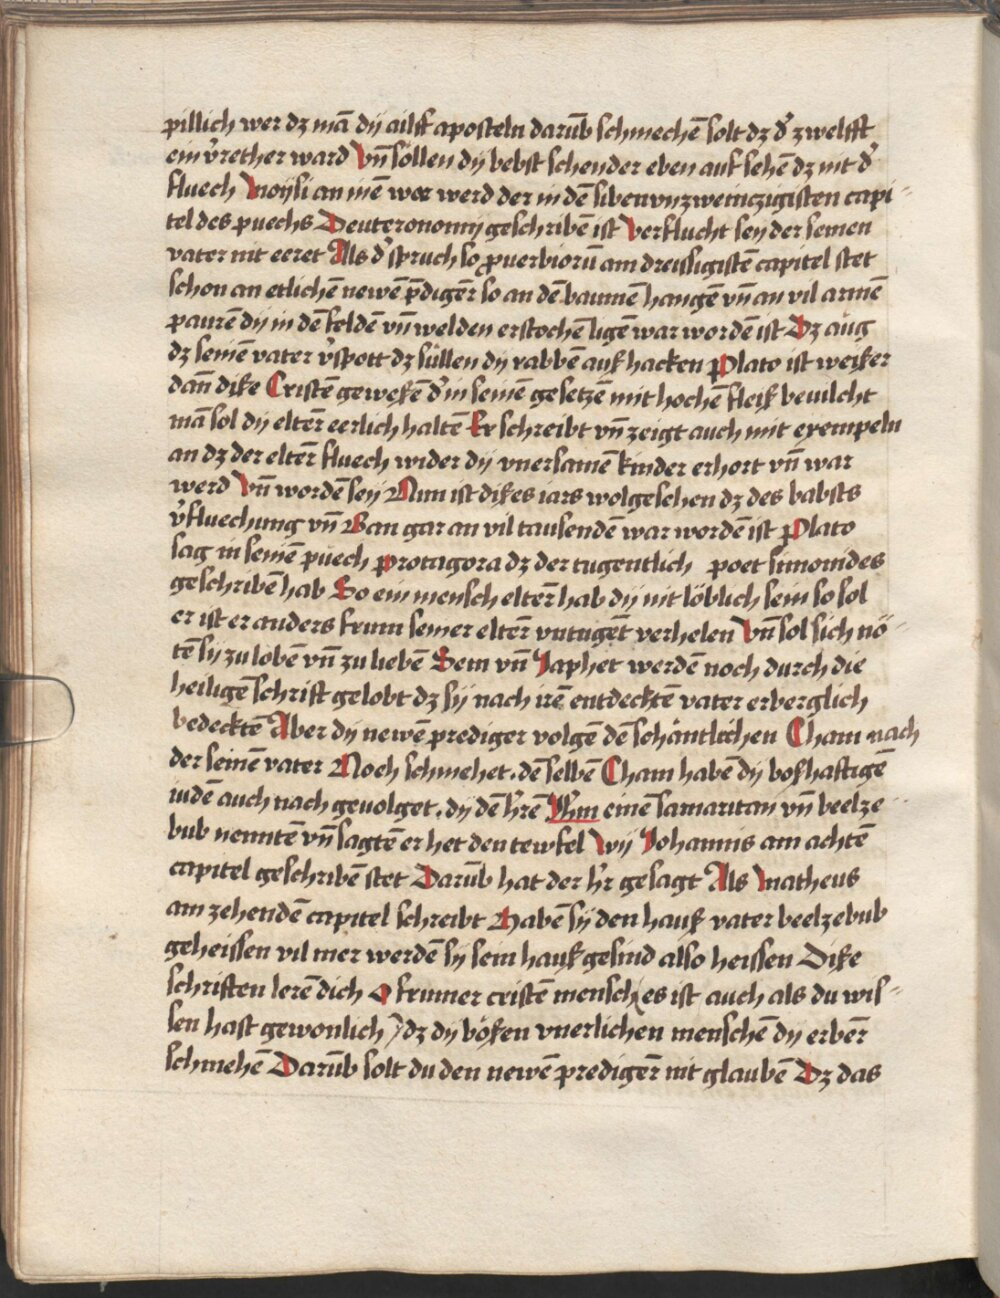 pillich wer dz mā dij ailff aposteln darūb schmechē solt dz d' zwelfft
ein v'rether ward Vn̄ söllen dij bebst schender eben auf sehē dz nit d'
fluech Moijsi an inē wor werd der in dē siben vn zweinczigisten capi-
tel des puechs Deuteronomij geschribē ist Verflucht seij der seinen
vater nit eeret Als d' spruch so proverbiorū am dreissigistē capitel stet
schon an etlichē newē p̄digēr so an dē baumen hangē vn̄ an vil armē
paurē dij in dē feldē vn̄ welden erstochē ligē war wordē ist Dz aug
dz seinē vater v'spott dz süllen dij rabbē auß hacken Plato ist weißer
dan̄ diße Cristē geweßē d' in seinē gesetzē mit hochē fleiß bevilcht
mā sol dij eltēr eerlich haltē Er schreibt vn̄ zeigt auch mit exempeln
an dz der eltēr fluech wider dij vnersamē kinder erhort vn̄ war
werd Vn̄ wordē seij Nun ist dißes iars wol gesehen dz des babsts
v'fluechung vn̄ Ban gar an vil tausendē war wordē ist Plato
sag in seinē puech Protagora dz der tugentlich poet simonides
geschribē hab So ein mensch eltēr hab dij nit löblich sein so sol
er ist er anders frum seiner eltēr vntugēt verhelen Vn̄ sol sich nö-
tē sij zu lobē vn̄ zu liebē Sem vn̄ Japhet werdē noch durch die
heiligē schrift gelobt dz sij nach irē entdecktē vater erberglich
bedecktē Aber dij newē prediger volgē dē schäntlichen Cham nach
der seinē vater Noch schmehet. dē selbē Cham habē dij boßhaftigē
iudē auch nach gevolget. dij dē hr̄ē Jhm einē samaritan vn̄ beelze-
bub nenntē vn̄ sagtē er het den tewfel Wij Johannis am achtē
capitel geschribē stet Darūb hat der hr̄ gesagt Als Matheus
am zehendē capitel schreibt Habē sij den hauß vater beelzebub
geheissen vil mer werdē sij sein haußgesind also heissen Diße
schriften lerē dich O frumer cristē mensch es ist auch als du wis-
sen hast gewonlich dz dij bößen vnerlichen menschē dij erbēr
schmehē Darūb solt du den newē predigēr nit glaubē Dz das